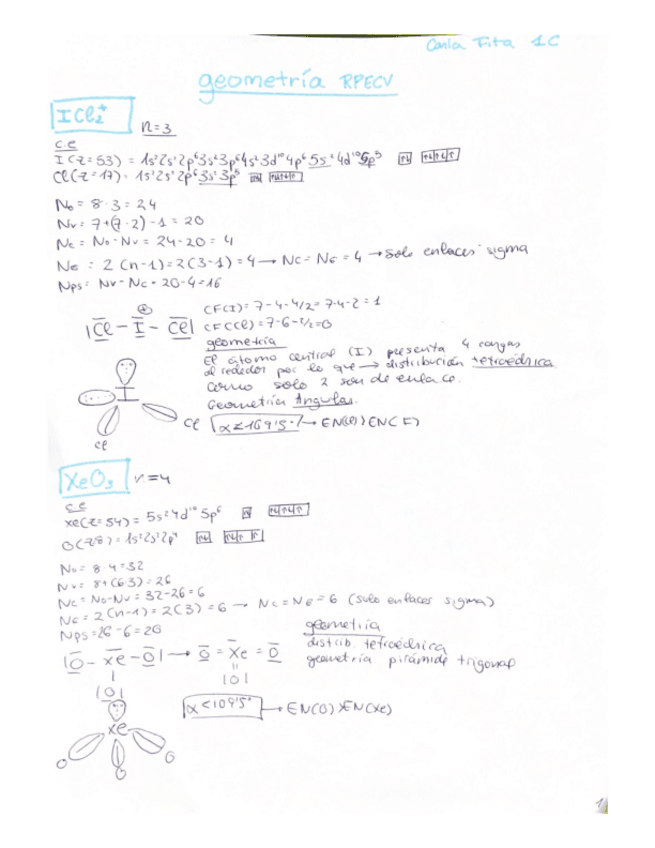 Carla Fita 1C
geometría RPECV
ICl₂⁺ n=3
c.e
I (z=53) = 1s²2s²2p⁶3s²3p⁶4s²3d¹⁰4p⁶5s²4d¹⁰5p⁵
Cl(z=17) = 1s²2s²2p⁶3s²3p⁵
No = 8·3 = 24
Nv = 7+(7·2)-1 = 20
Nc = No-Nv = 24-20 = 4
Ne = 2(n-1)=2(3-1) = 4 → Nc=Ne=4 → solo enlaces sigma
Nps = Nv-Nc = 20-4=16
|Cl – I – Cl|
⊕
CF(I) = 7-4-4/2 = 7-4-2 = 1
CF(Cl) = 7-6-2/2=0
geometría
El átomo central (I) presenta 4 cargas
alrededor por lo que → distribución tetraédrica
como solo 2 son de enlace.
Geometría Angular.
I
Cl
Cl
α<109'5º → EN(Cl)>EN(I)
XeO₃ n=4
c.e
Xe(z=54) = 5s²4d¹⁰5p⁶
O(z=8) = 1s²2s²2p⁴
No = 8·4 = 32
Nv = 8+(6·3) = 26
Nc = No-Nv = 32-26 = 6
Ne = 2(n-1) = 2(3) = 6 → Nc=Ne=6 (solo enlaces sigma)
Nps = 26-6 = 20
geometría
distrib. tetraédrica
geometría pirámide trigonal
|O – Xe – O| → O = Xe = O
|O| |O|
Xe
O O O
α<109'5º → EN(O)>EN(Xe)
1